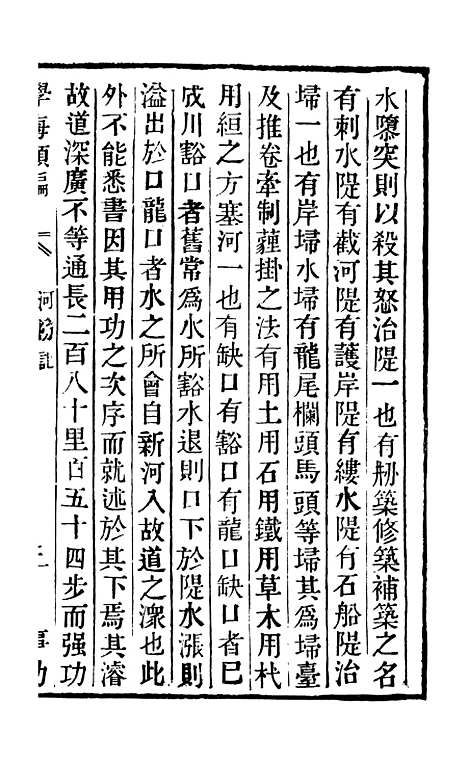 水隳突則以殺其怒治隄一也有刱築修築補築之名
有刺水隄有截河隄有護岸隄有縷水隄有石船隄治
埽一也有岸埽水埽有龍尾欄頭馬頭等埽其爲埽臺
及推卷牽制薶掛之法有用土用石用鐵用草木用杙
用絙之方塞河一也有缺口有豁口有龍口缺口者巳
成川豁口者舊常爲水所豁水退則口下於隄水漲則
溢出於口龍口者水之所會自新河入故道之潨也此
外不能悉書因其用功之次序而就述於其下焉其濬
故道深廣不等通長二百八十里百五十四步而强功
學海類編 河防記 事功